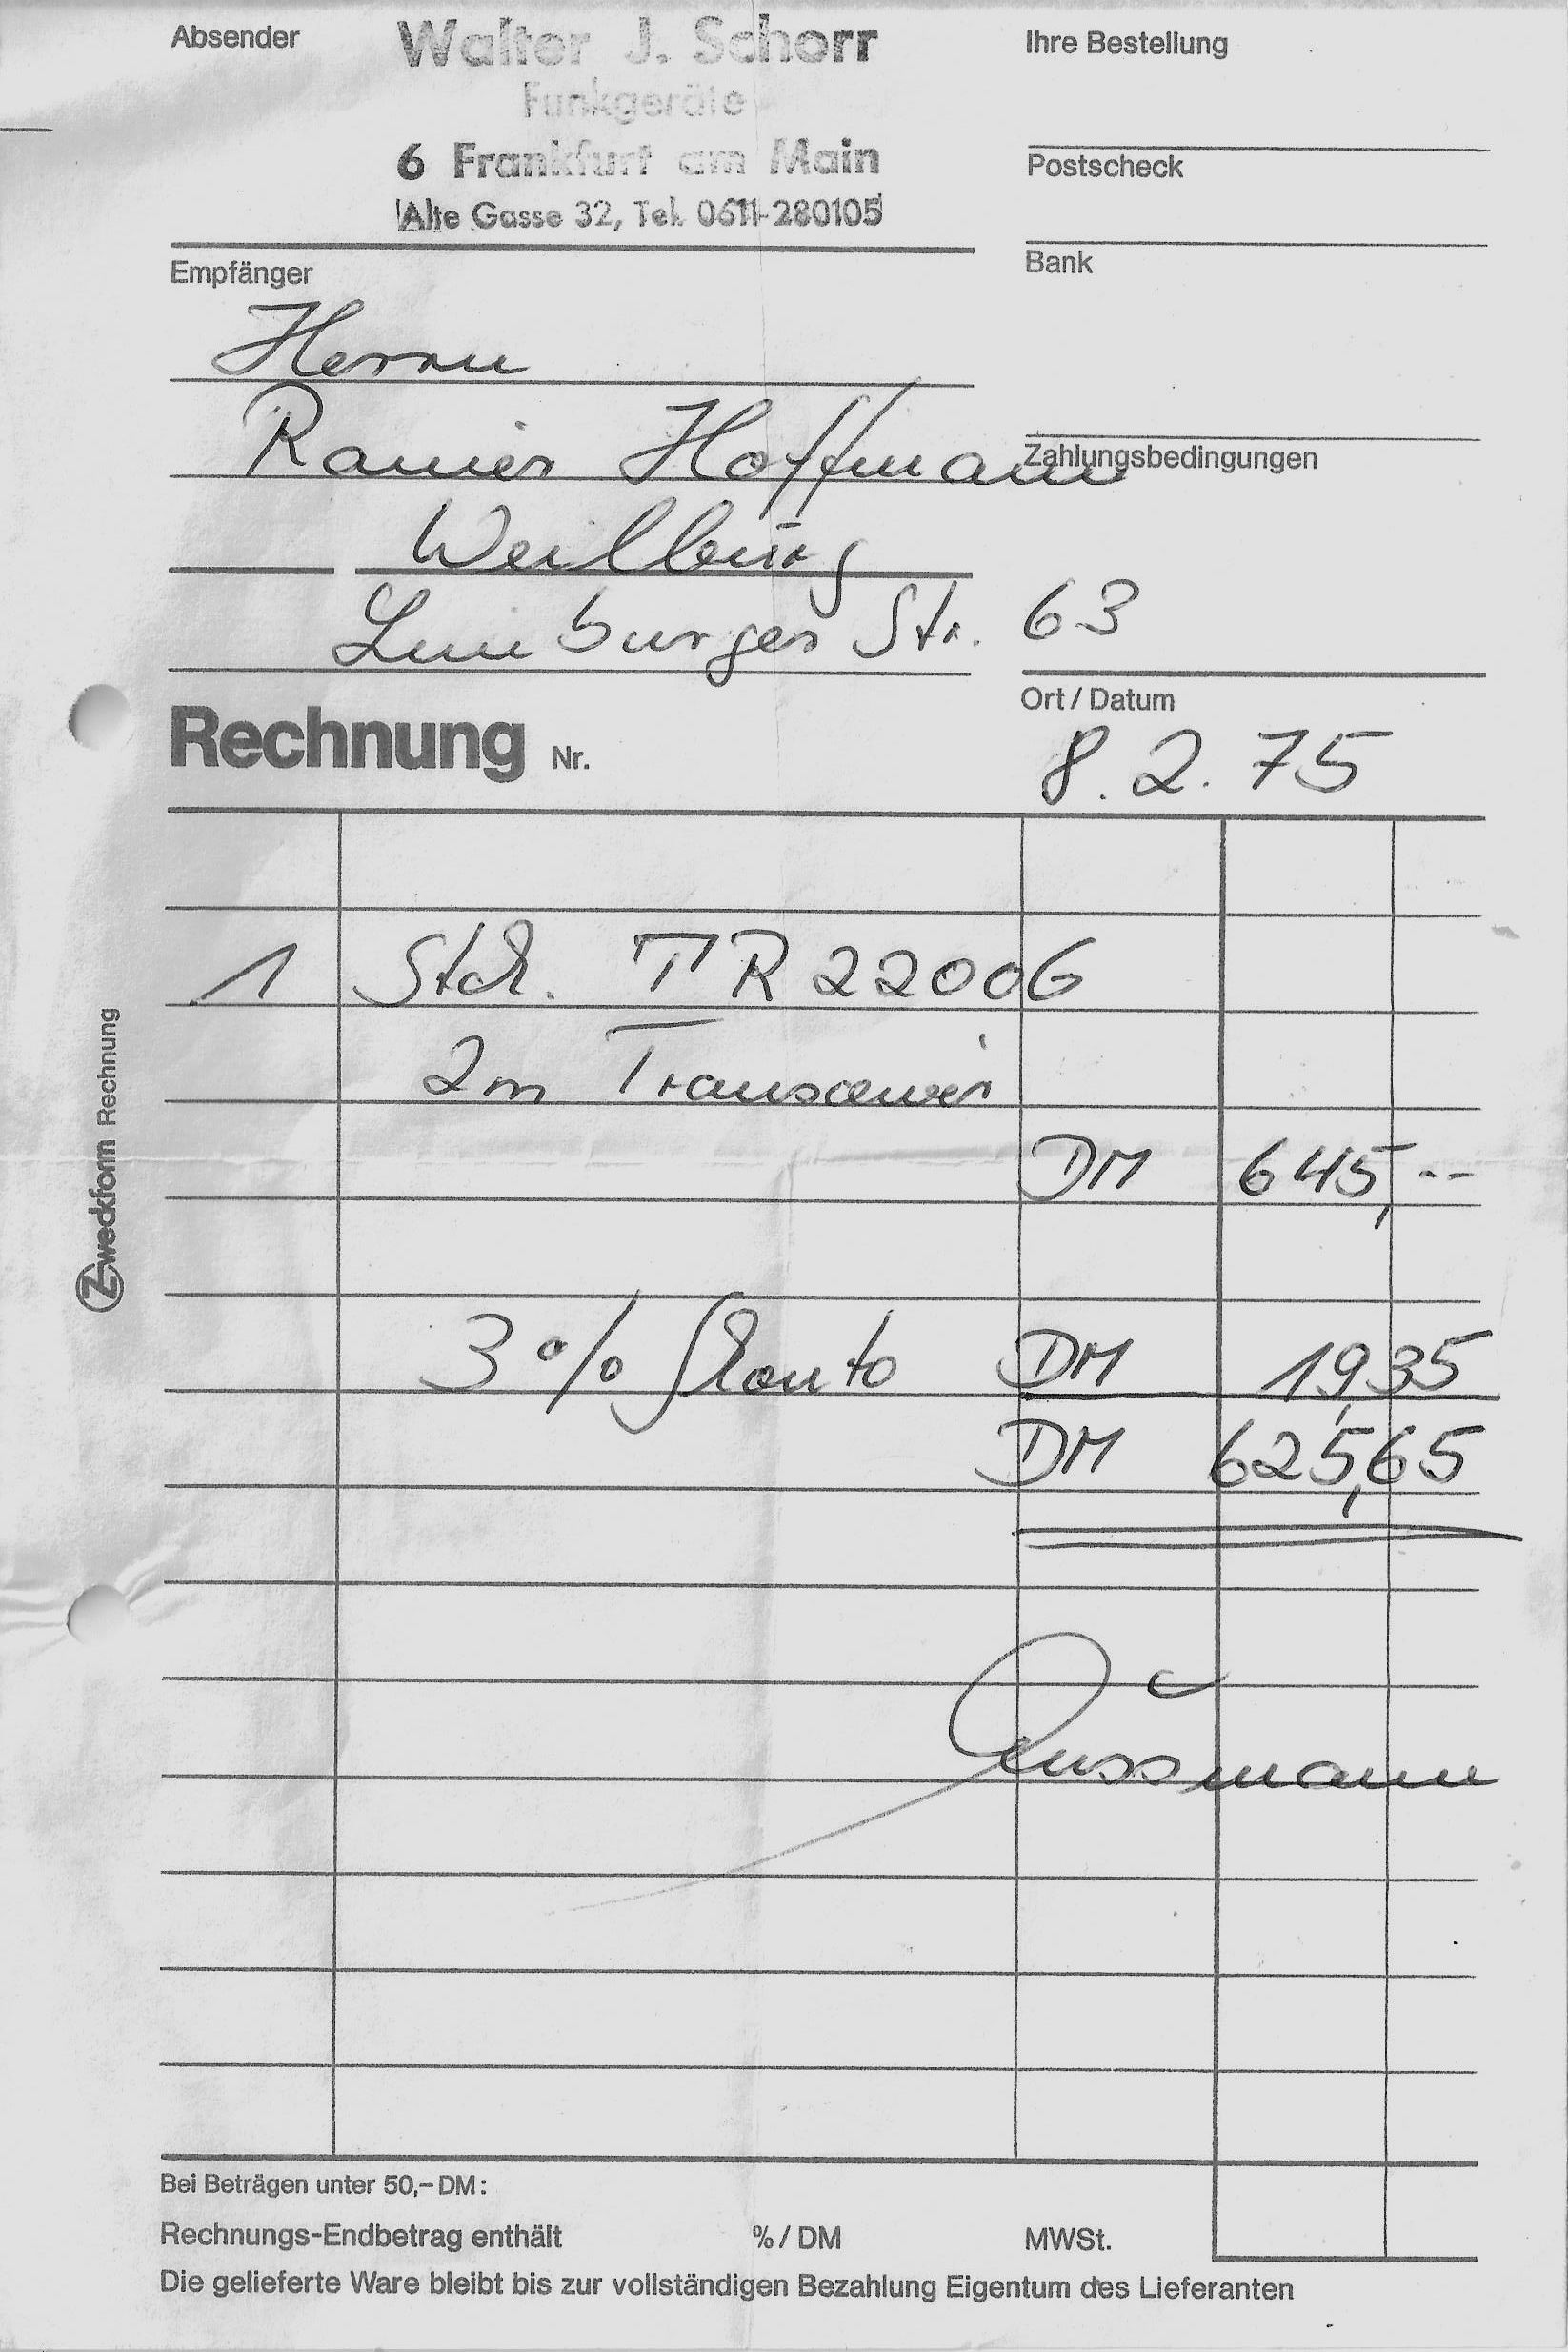 Absender
Walter J. Schorr
Funkgeräte
6 Frankfurt am Main
Alte Gasse 32, Tel. 0611-280105
Ihre Bestellung
Postscheck
Bank
Zahlungsbedingungen
Empfänger
Herrn
Rainer Hoffmann
Weilburg
Limburger Str. 63
Ort / Datum
Rechnung Nr.
8.2.75
1 Stck. TR 2200G
2m Transceiver
DM 645,--
3% Skonto DM 19,35
DM 625,65
Zweckform Rechnung
Bei Beträgen unter 50,– DM:
Rechnungs-Endbetrag enthält % / DM MWSt.
Die gelieferte Ware bleibt bis zur vollständigen Bezahlung Eigentum des Lieferanten